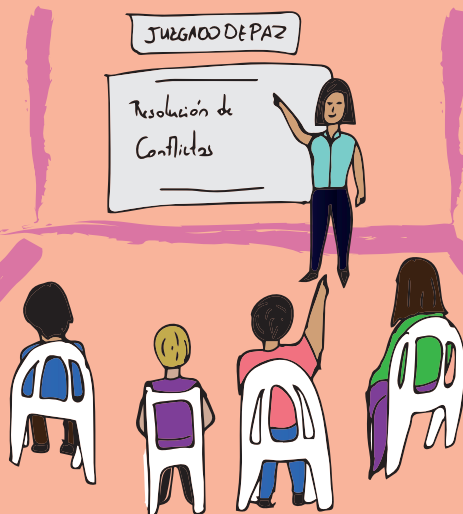 JUZGADO DE PAZ
Resolución de
Conflictos